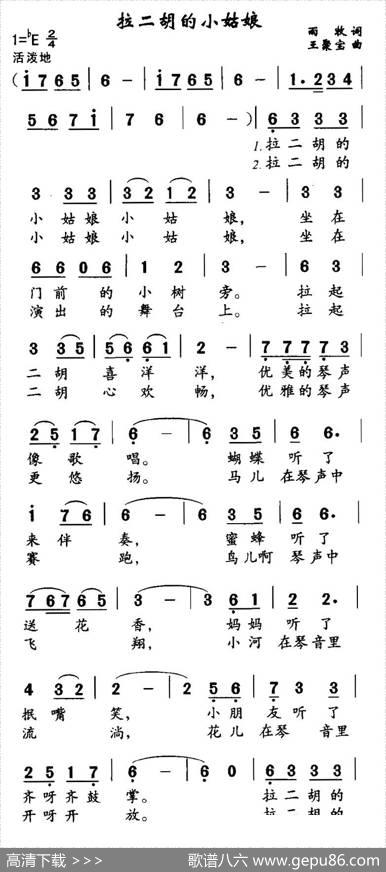 拉二胡的小姑娘
1=♭E 2/4
雨牧 词
活泼地
王聚宝 曲
( i 7 6 5 | 6 - | i 7 6 5 | 6 - | 1 · 2 3 4 |
5 6 7 i | 7 6 | 6 - ) | 6 3 3 3 |
1.拉二胡的
2.拉二胡的
3 3 3 | 3 2 1 2 | 3 - | 3 3 |
小姑娘 小姑娘, 坐在
小姑娘 小姑娘, 坐在
6 6 0 6 | 1 2 | 3 - | 6 3 |
门前的小树旁。 拉起
演出的舞台上。 拉起
3 3 5 | 5 6 6 1 | 2 - | 7 7 7 7 3 |
二胡喜洋洋, 优美的琴声
二胡心欢畅, 优雅的琴声
2 5 1 7 | 6 - | 6 3 5 | 6 6· |
像歌唱。 蝴蝶听了
更悠扬。 马儿在琴声中
i 7 6 | 6 - | 6 3 5 | 6 6· |
来伴奏, 蜜蜂听了
赛跑, 鸟儿啊琴声中
7 6 7 6 5 | 3 - | 3 6 1 | 2 2· |
送花香, 妈妈听了
飞翔, 小河在琴音里
4 3 2 | 2 - | 2 5 6 | 7 3 3 |
抿嘴笑, 小朋友听了
流淌, 花儿在琴音里
2 5 1 7 | 6 - | 6 0 | 6 3 3 3 |
齐呀齐鼓掌。 拉二胡的
开呀开放。 拉二胡的
高清下载 >>>
歌谱八六 www.gepu86.com